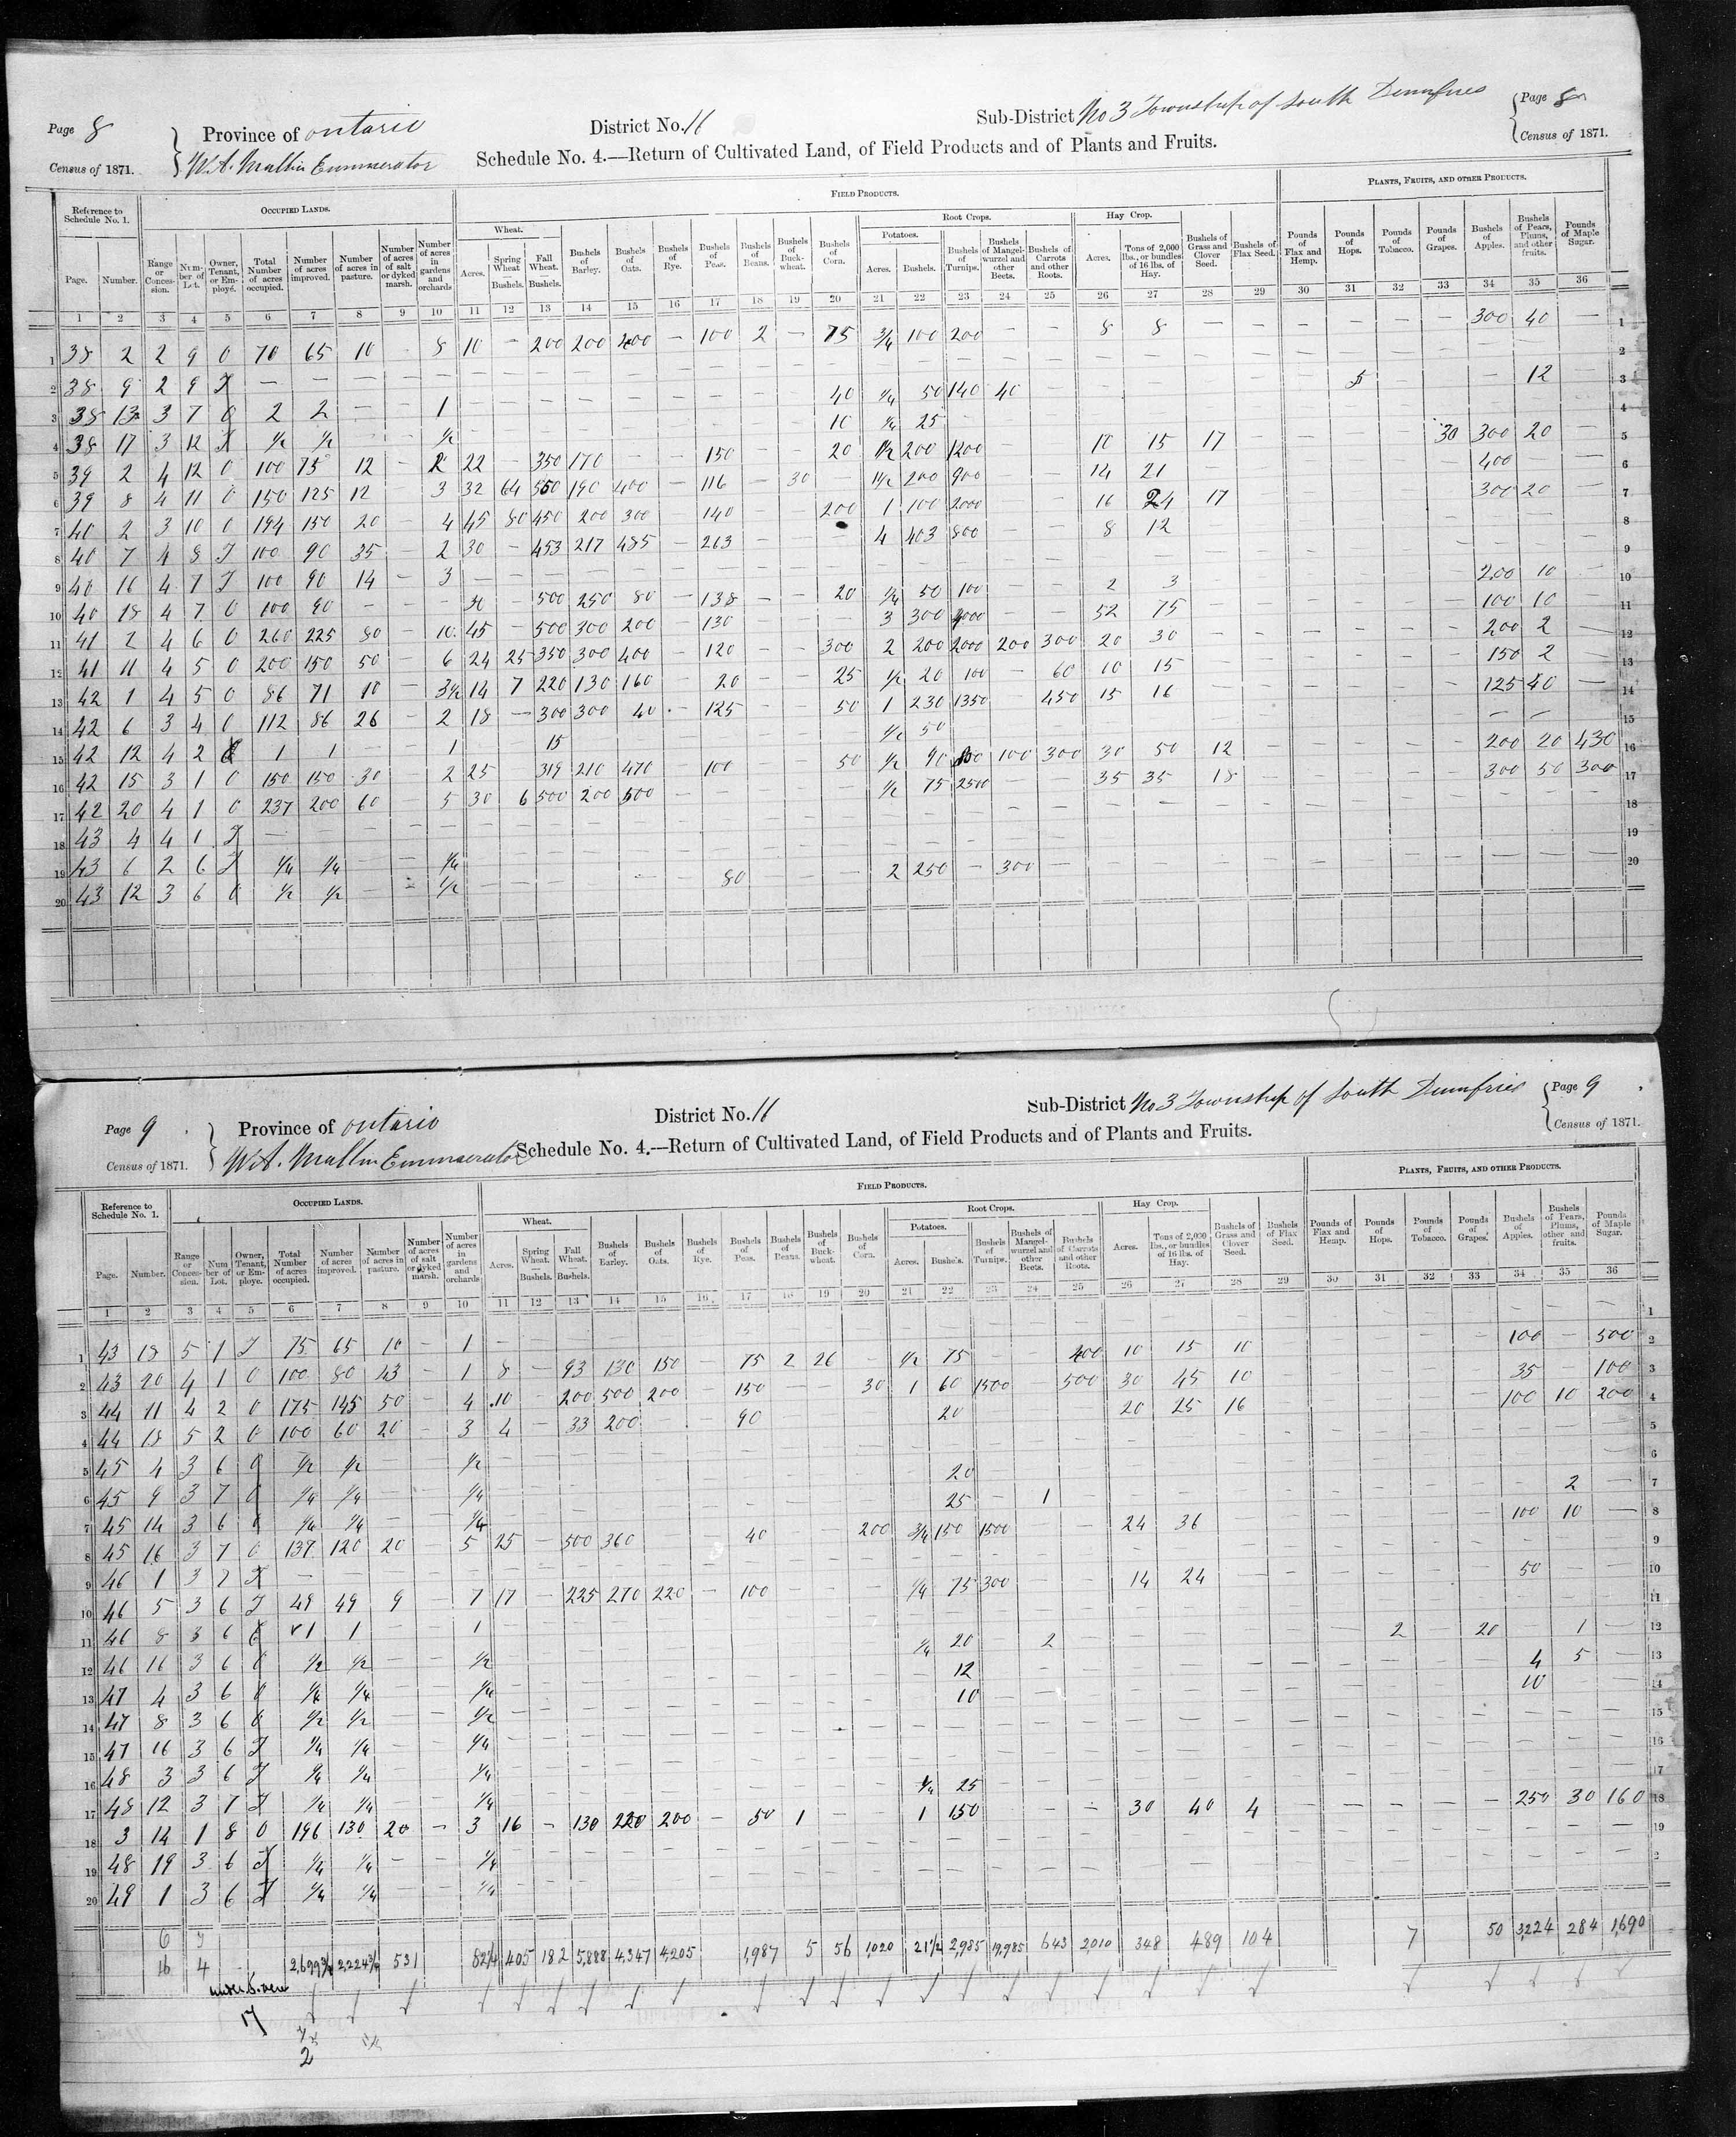 Page 8
Census of 1871.
Province of Ontario
W.A. Mullin Enumerator
District No. 11
Sub-District No 3 Township of South Dumfries
Page 8
Census of 1871.
Schedule No. 4.—Return of Cultivated Land, of Field Products and of Plants and Fruits.
Reference to Schedule No. 1. OCCUPIED LANDS. FIELD PRODUCTS. PLANTS, FRUITS, AND OTHER PRODUCTS.
Wheat. Root Crops. Potatoes. Hay Crop.
Page. Number. Range or Concession. Number of Lot. Owner, Tenant, or Employé. Total Number of acres occupied. Number of acres improved. Number of acres in pasture. Number of acres of salt or dyked marsh. Number of acres in gardens and orchards Acres. Spring Wheat — Bushels. Fall Wheat. — Bushels. Bushels of Barley. Bushels of Oats. Bushels of Rye. Bushels of Peas. Bushels of Beans. Bushels of Buckwheat. Bushels of Corn. Acres. Bushels. Bushels of Turnips. Bushels of Mangel-wurzel and other Beets. Bushels of Carrots and other Roots. Acres. Tons of 2,000 lbs., or bundles of 16 lbs. of Hay. Bushels of Grass and Clover Seed. Bushels of Flax Seed. Pounds of Flax and Hemp. Pounds of Hops. Pounds of Tobacco. Pounds of Grapes. Bushels of Apples. Bushels of Pears, Plums, and other fruits. Pounds of Maple Sugar.
1 2 3 4 5 6 7 8 9 10 11 12 13 14 15 16 17 18 19 20 21 22 23 24 25 26 27 28 29 30 31 32 33 34 35 36
1 38 2 2 9 O 70 65 10 8 10 — 200 200 400 — 100 2 — 75 3/4 100 200 — — 8 8 — — — — — — 300 40 — 1
2 38 9 2 9 T — — — 2
3 38 13 3 7 O 2 2 — — 1 40 1/4 50 140 40 5 12 3
4 38 17 3 12 1/2 1/2 1/2 10 1/4 25 4
5 39 2 4 12 O 100 75 12 — 2 22 — 350 170 — — 150 20 1/2 200 1200 10 15 17 30 300 20 — 5
6 39 8 4 11 O 150 125 12 3 32 64 550 190 400 — 116 — 30 — 1 1/2 200 900 14 21 400 6
7 40 2 3 10 O 194 150 20 — 4 45 80 450 200 300 — 140 200 1 100 2000 16 24 17 300 20 7
8 40 7 4 8 T 100 90 35 — 2 30 — 453 217 485 — 263 4 403 800 8 12 8
9 40 16 4 7 T 100 90 14 — 3 9
10 40 18 4 7 O 100 90 — — — 30 — 500 250 80 — 138 — — 20 1/4 50 100 2 3 200 10 10
11 41 2 4 6 O 260 225 80 — 10 45 — 500 300 200 — 130 3 300 52 75 100 10 11
12 41 11 4 5 O 200 150 50 — 6 24 25 350 300 400 — 120 — — 300 2 200 2000 200 300 20 30 200 2 12
13 42 1 4 5 O 86 71 10 — 3 1/2 14 7 220 130 160 — 20 25 1/2 20 100 — 60 10 15 150 2 13
14 42 6 3 4 O 112 86 26 — 2 18 — 300 300 40 — 125 50 1 230 1350 450 15 16 125 40 — 14
15 42 12 4 2 1 1 — 1 15 1/2 50 — — 15
16 42 15 3 1 O 150 150 30 2 25 319 210 470 — 100 50 1/2 90 100 300 30 50 12 200 20 430 16
17 42 20 4 1 O 237 200 60 — 5 30 6 500 200 500 1/2 75 2500 35 35 18 300 50 300 17
18 43 4 4 1 T — 18
19 43 6 2 6 T 1/4 1/4 1/4 19
20 43 12 3 6 O 1/2 1/2 1/2 80 2 250 — 300 — 20
Page 9
Census of 1871.
Province of Ontario
W.A. Mullin Enumerator
District No. 11
Sub-District No 3 Township of South Dumfries
Page 9
Census of 1871.
Schedule No. 4.—Return of Cultivated Land, of Field Products and of Plants and Fruits.
Reference to Schedule No. 1. OCCUPIED LANDS. FIELD PRODUCTS. PLANTS, FRUITS, AND OTHER PRODUCTS.
Wheat. Root Crops. Potatoes. Hay Crop.
Page. Number. Range or Concession. Number of Lot. Owner, Tenant, or Employe. Total Number of acres occupied. Number of acres improved. Number of acres in pasture. Number of acres of salt or dyked marsh. Number of acres in gardens and orchards Acres. Spring Wheat — Bushels. Fall Wheat. — Bushels. Bushels of Barley. Bushels of Oats. Bushels of Rye. Bushels of Peas. Bushels of Beans. Bushels of Buckwheat. Bushels of Corn. Acres. Bushels. Bushels of Turnips. Bushels of Mangel-wurzel and other Beets. Bushels of Carrots and other Roots. Acres. Tons of 2,000 lbs., or bundles of 16 lbs. of Hay. Bushels of Grass and Clover Seed. Bushels of Flax Seed. Pounds of Flax and Hemp. Pounds of Hops. Pounds of Tobacco. Pounds of Grapes. Bushels of Apples. Bushels of Pears, Plums, other and fruits. Pounds of Maple Sugar.
1 2 3 4 5 6 7 8 9 10 11 12 13 14 15 16 17 18 19 20 21 22 23 24 25 26 27 28 29 30 31 32 33 34 35 36
1 43 18 5 1 T 75 65 10 — 1 1
2 43 20 4 1 O 100 80 43 — 1 8 — 93 130 150 — 75 2 26 — 1/2 75 400 10 15 10 100 — 500 2
3 44 11 4 2 O 175 145 50 4 10 — 200 500 200 — 150 30 1 60 1500 500 30 45 10 35 — 100 3
4 44 18 5 2 O 100 60 20 — 3 4 33 200 90 20 20 25 16 100 10 200 4
5 45 4 3 6 O 1/2 1/2 1/2 5
6 45 9 3 7 O 1/4 1/4 1/4 20 6
7 45 14 3 6 1/4 1/4 1/4 25 — 1 2 — 7
8 45 16 3 7 O 137 120 20 — 5 25 — 500 360 40 200 3/4 150 1500 24 36 100 10 — 8
9 46 1 3 7 — 9
10 46 5 3 6 T 49 49 9 — 7 17 — 225 270 220 — 100 1/4 75 300 14 24 50 10
11 46 8 3 6 1 1 1 11
12 46 16 3 6 O 1/2 1/2 1/2 1/4 20 2 2 20 1 — 12
13 47 4 3 6 O 1/4 1/4 1/4 12 4 5 13
14 47 8 3 6 O 1/2 1/2 1/2 10 10 14
15 47 16 3 6 T 1/4 1/4 1/4 15
16 48 3 3 6 T 1/4 1/4 1/4 16
17 48 12 3 7 T 1/4 1/4 1/4 1/4 25 17
18 3 14 1 8 O 196 130 20 — 3 16 — 130 220 200 — 50 1 — 1 150 30 40 4 250 30 160 18
19 48 19 3 6 T 1/4 1/4 1/4 19
20 49 1 3 6 T 1/4 1/4 1/4 2
6
16 4 2,699 3/4 2,224 3/4 531 82 1/4 405 182 5,888 4,347 4,205 1,987 5 56 1,020 21 1/2 2,985 19,985 643 2,010 348 489 104 7 50 3,224 284 1,690
17
2